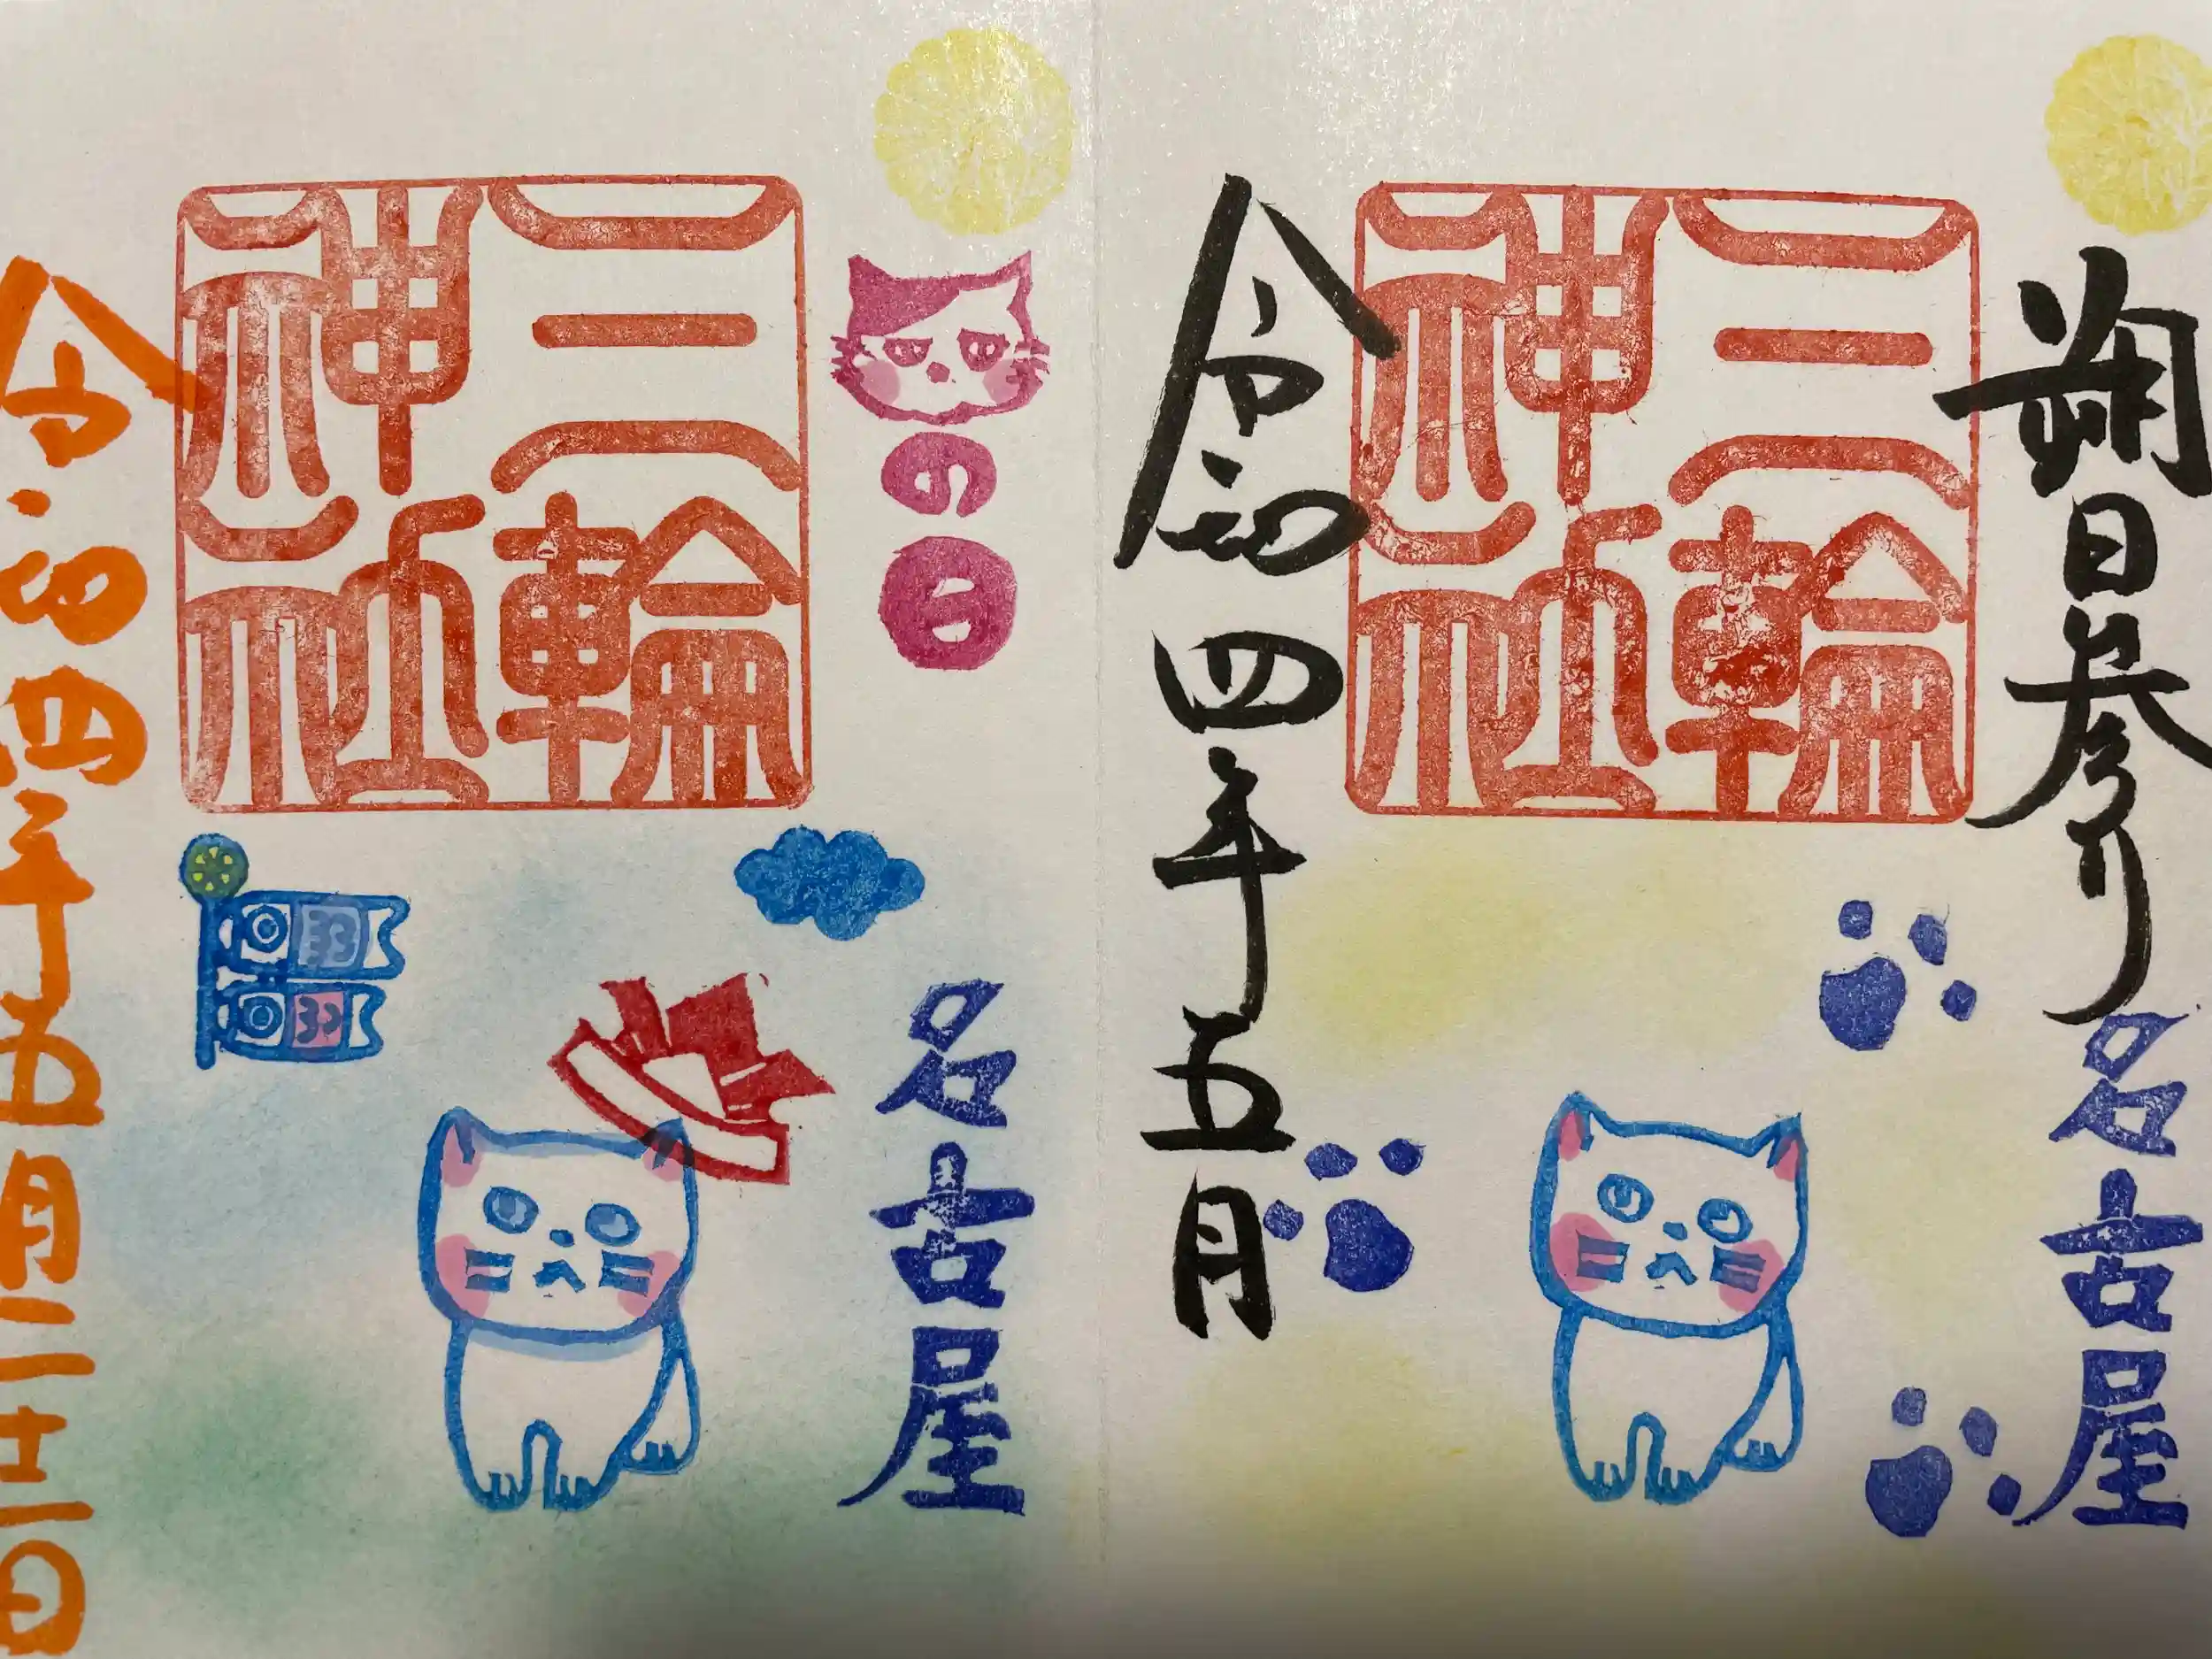 朔日参り
名古屋
三輪
神社
令和四年五月
の日
名古屋
三輪
神社
令和四年五月二十二日